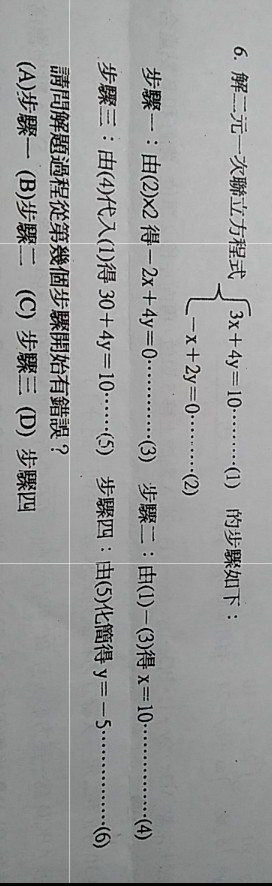 6. 解二元一次聯立方程式 { 3x + 4y = 10⋯⋯⋯(1) 的步驟如下：
−x + 2y = 0⋯⋯⋯(2)
步驟一：由(2)×2 得 − 2x + 4y = 0⋯⋯⋯⋯(3) 步驟二：由(1)−(3)得 x = 10⋯⋯⋯⋯⋯(4)
步驟三：由(4)代入(1)得 30 + 4y = 10⋯⋯(5) 步驟四：由(5)化簡得 y = − 5⋯⋯⋯⋯⋯(6)
請問解題過程從第幾個步驟開始有錯誤？
(A)步驟一 (B)步驟二 (C) 步驟三 (D) 步驟四